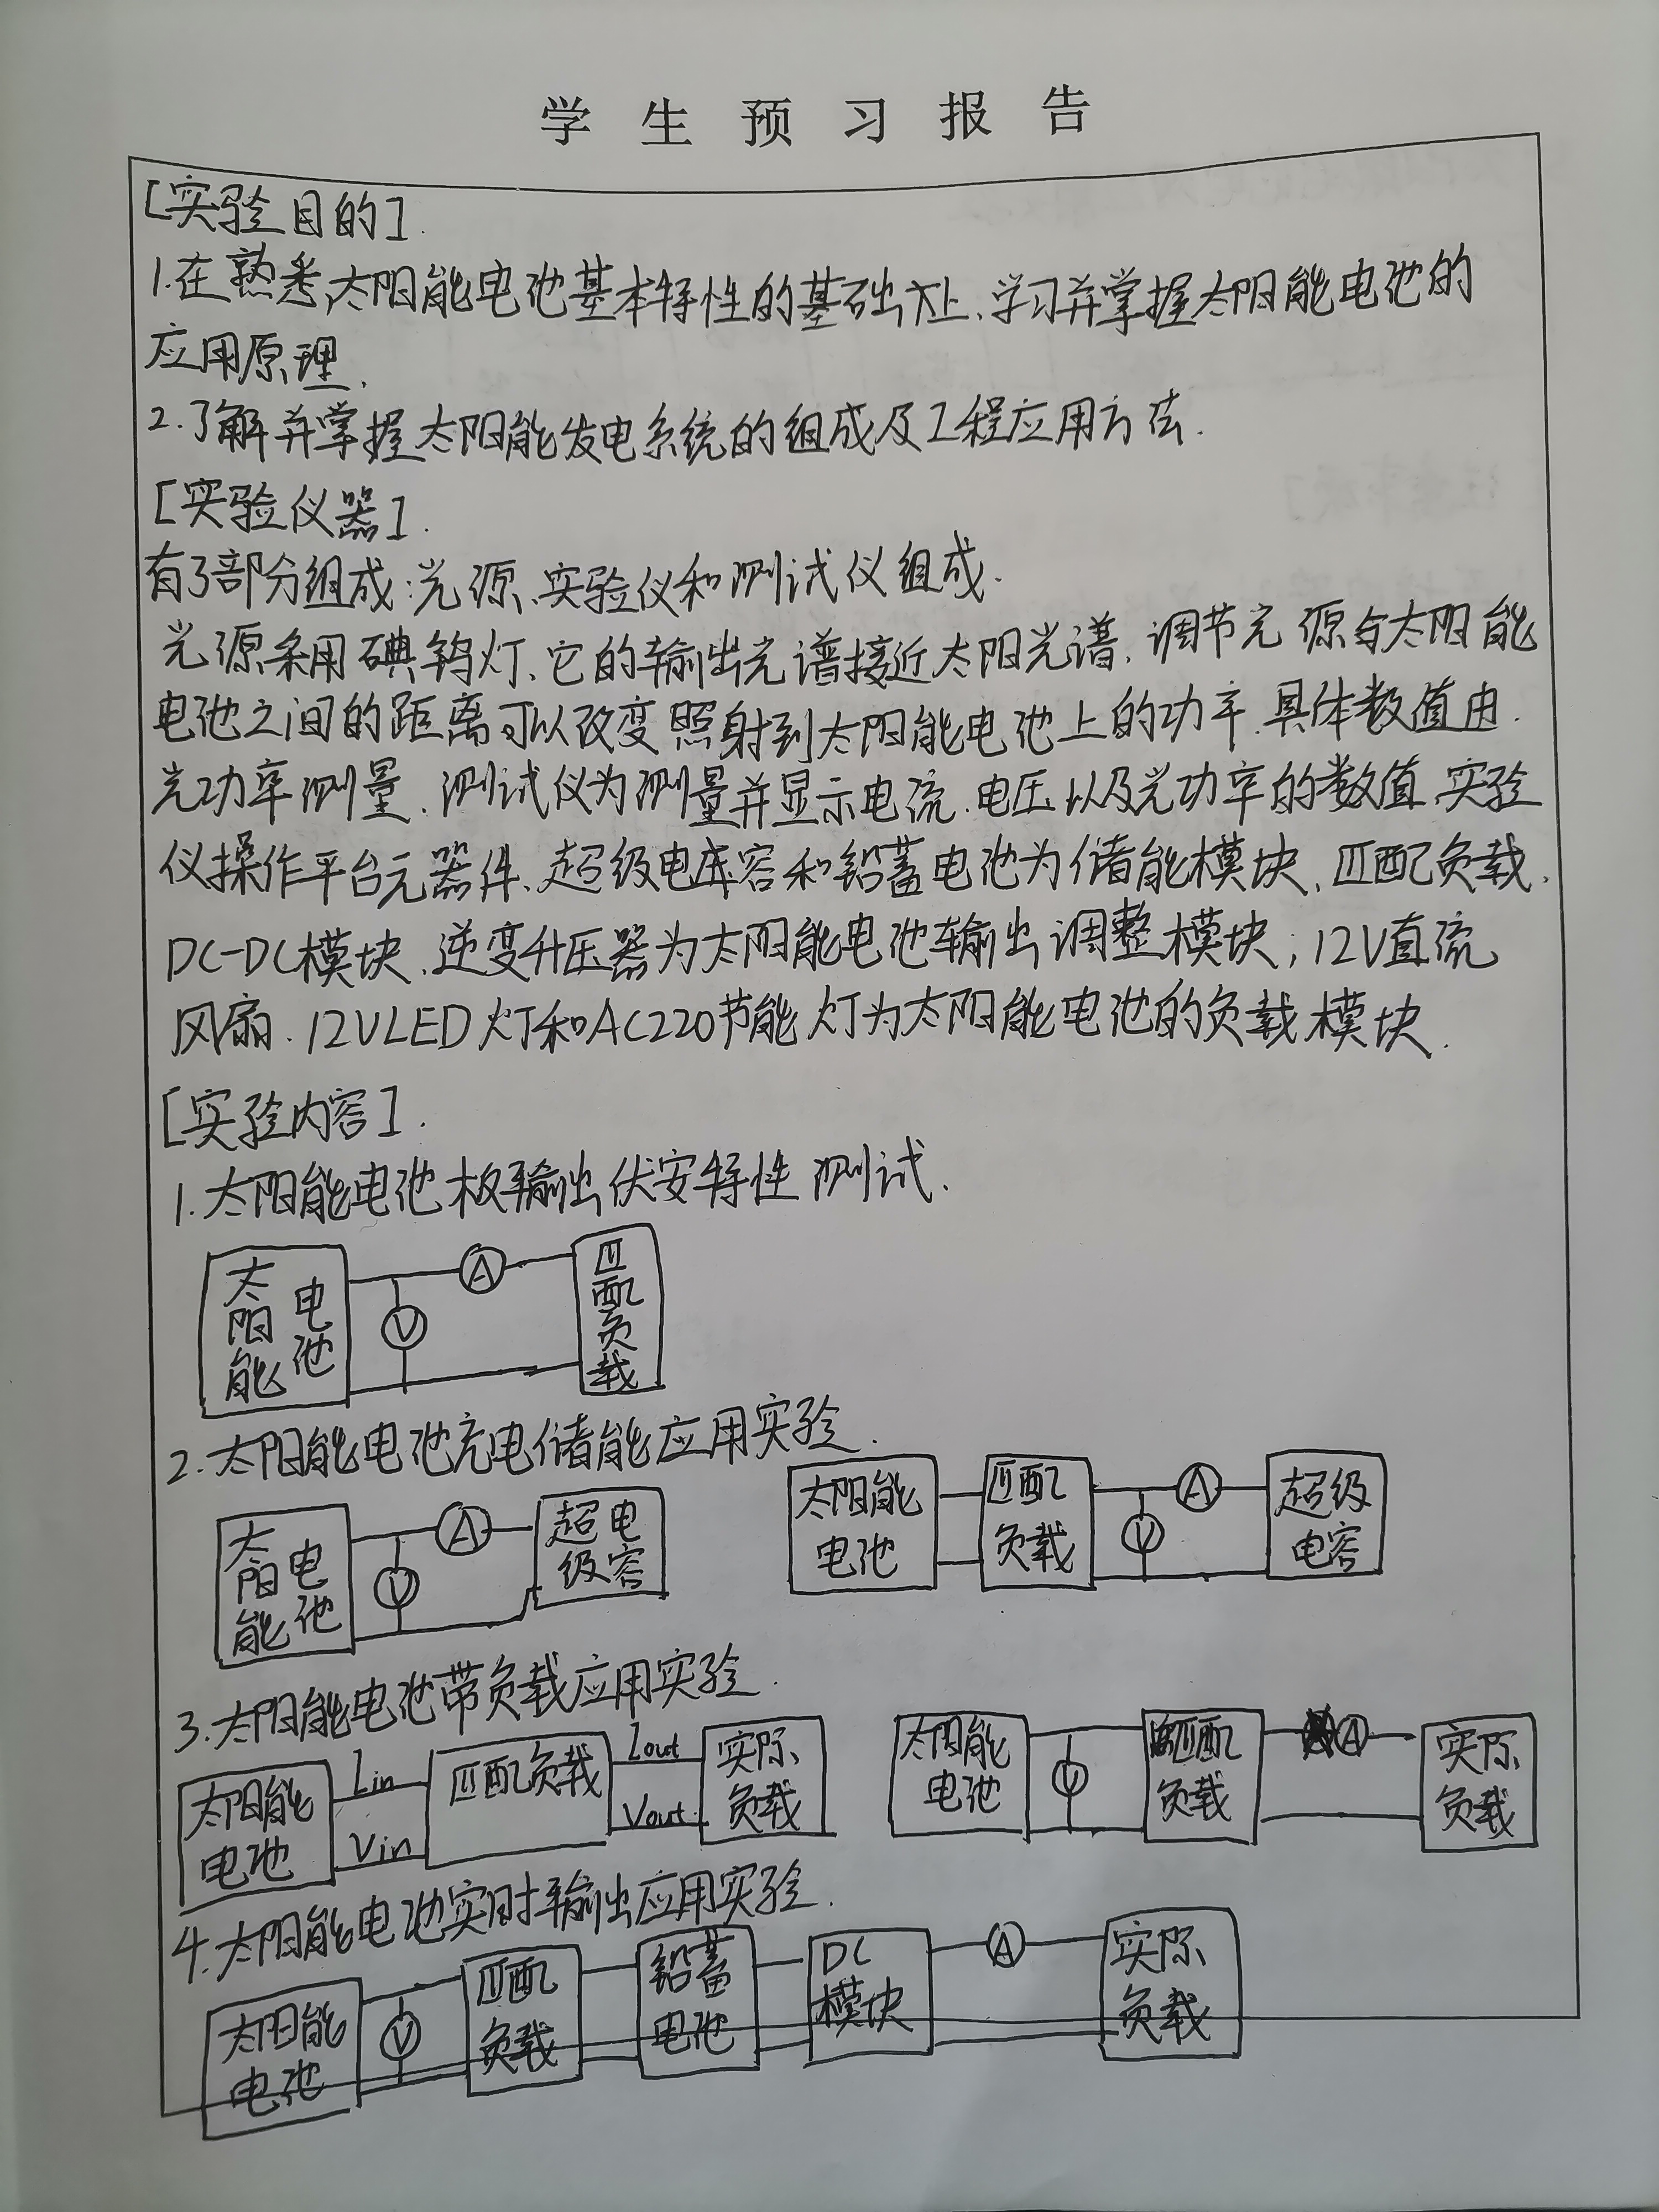 学生预习报告
[实验目的].
1.在熟悉太阳能电池基本特性的基础上、学习并掌握太阳能电池的
应用原理.
2.了解并掌握太阳能发电系统的组成及工程应用方法.
[实验仪器].
有3部分组成:光源、实验仪和测试仪组成.
光源采用碘钨灯、它的输出光谱接近太阳光谱、调节光源与太阳能
电池之间的距离可以改变照射到太阳能电池上的功率.具体数值由.
光功率测量.测试仪为测量并显示电流.电压以及光功率的数值.实验
仪操作平台元器件、超级电容和铅蓄电池为储能模块、匹配负载、
DC-DC模块、逆变升压器为太阳能电池输出调整模块;12V直流
风扇.12VLED灯和AC220节能灯为太阳能电池的负载模块.
[实验内容].
1.太阳能电池板输出伏安特性测试.
太阳能电池 V A 匹配负载
2.太阳能电池充电储能应用实验.
太阳能电池 V A 超级电容
太阳能电池 匹配负载 V A 超级电容
3.太阳能电池带负载应用实验.
太阳能电池 Iin Vin 匹配负载 Iout Vout 实际负载
太阳能电池 V 匹配负载 A 实际负载
4.太阳能电池实时输出应用实验.
太阳能电池 V 匹配负载 铅蓄电池 DC模块 A 实际负载